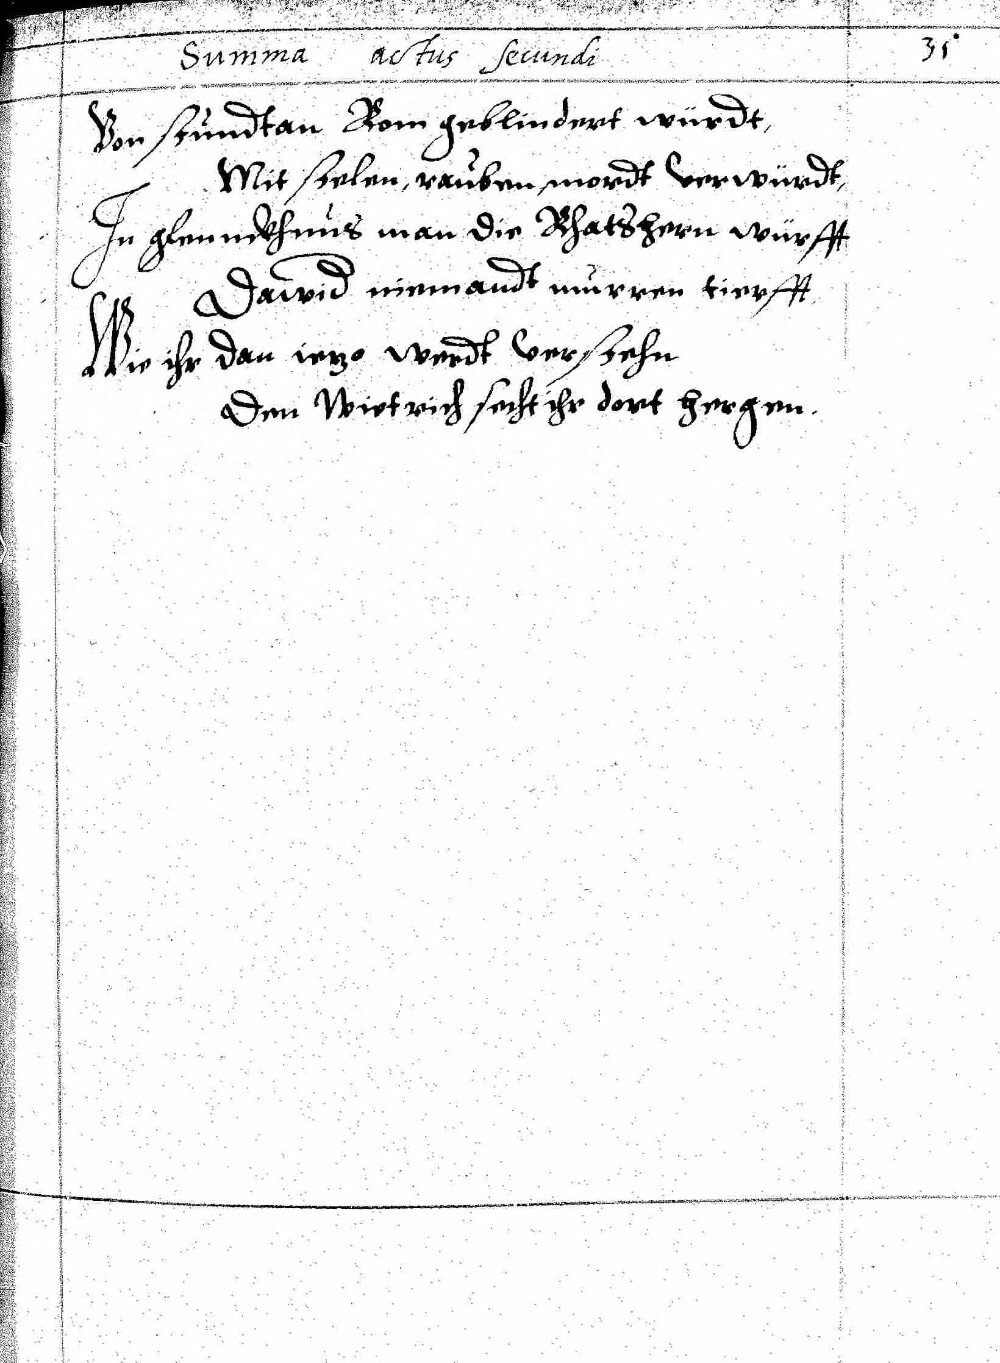 Summa actus secundi
31
Von stundt an Rom geblindert würdt,
Mit stelen, rauben, mordt verwürdt,
In gfennckhnus man die Rhatshern würfft
Dawid niemandt murren tierfft
Wie ihr dan ietzo werdt verstehn
Den Wietrich secht ihr dort hergen.